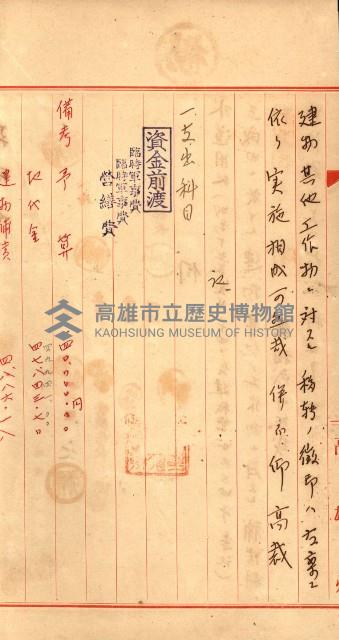 建物其他工作物ニ対スル移転ノ徴印ハ左案ニ
依リ実施相成可然哉 併而仰高裁
記
一支出科目
資金前渡
臨時軍事費
臨時軍事費
営繕費
備考 予算
四〇,〇〇〇.〇〇円
地代金
四七八四三.七〇
建物補償
四八八六.一八
高雄市立歷史博物館
KAOHSIUNG MUSEUM OF HISTORY